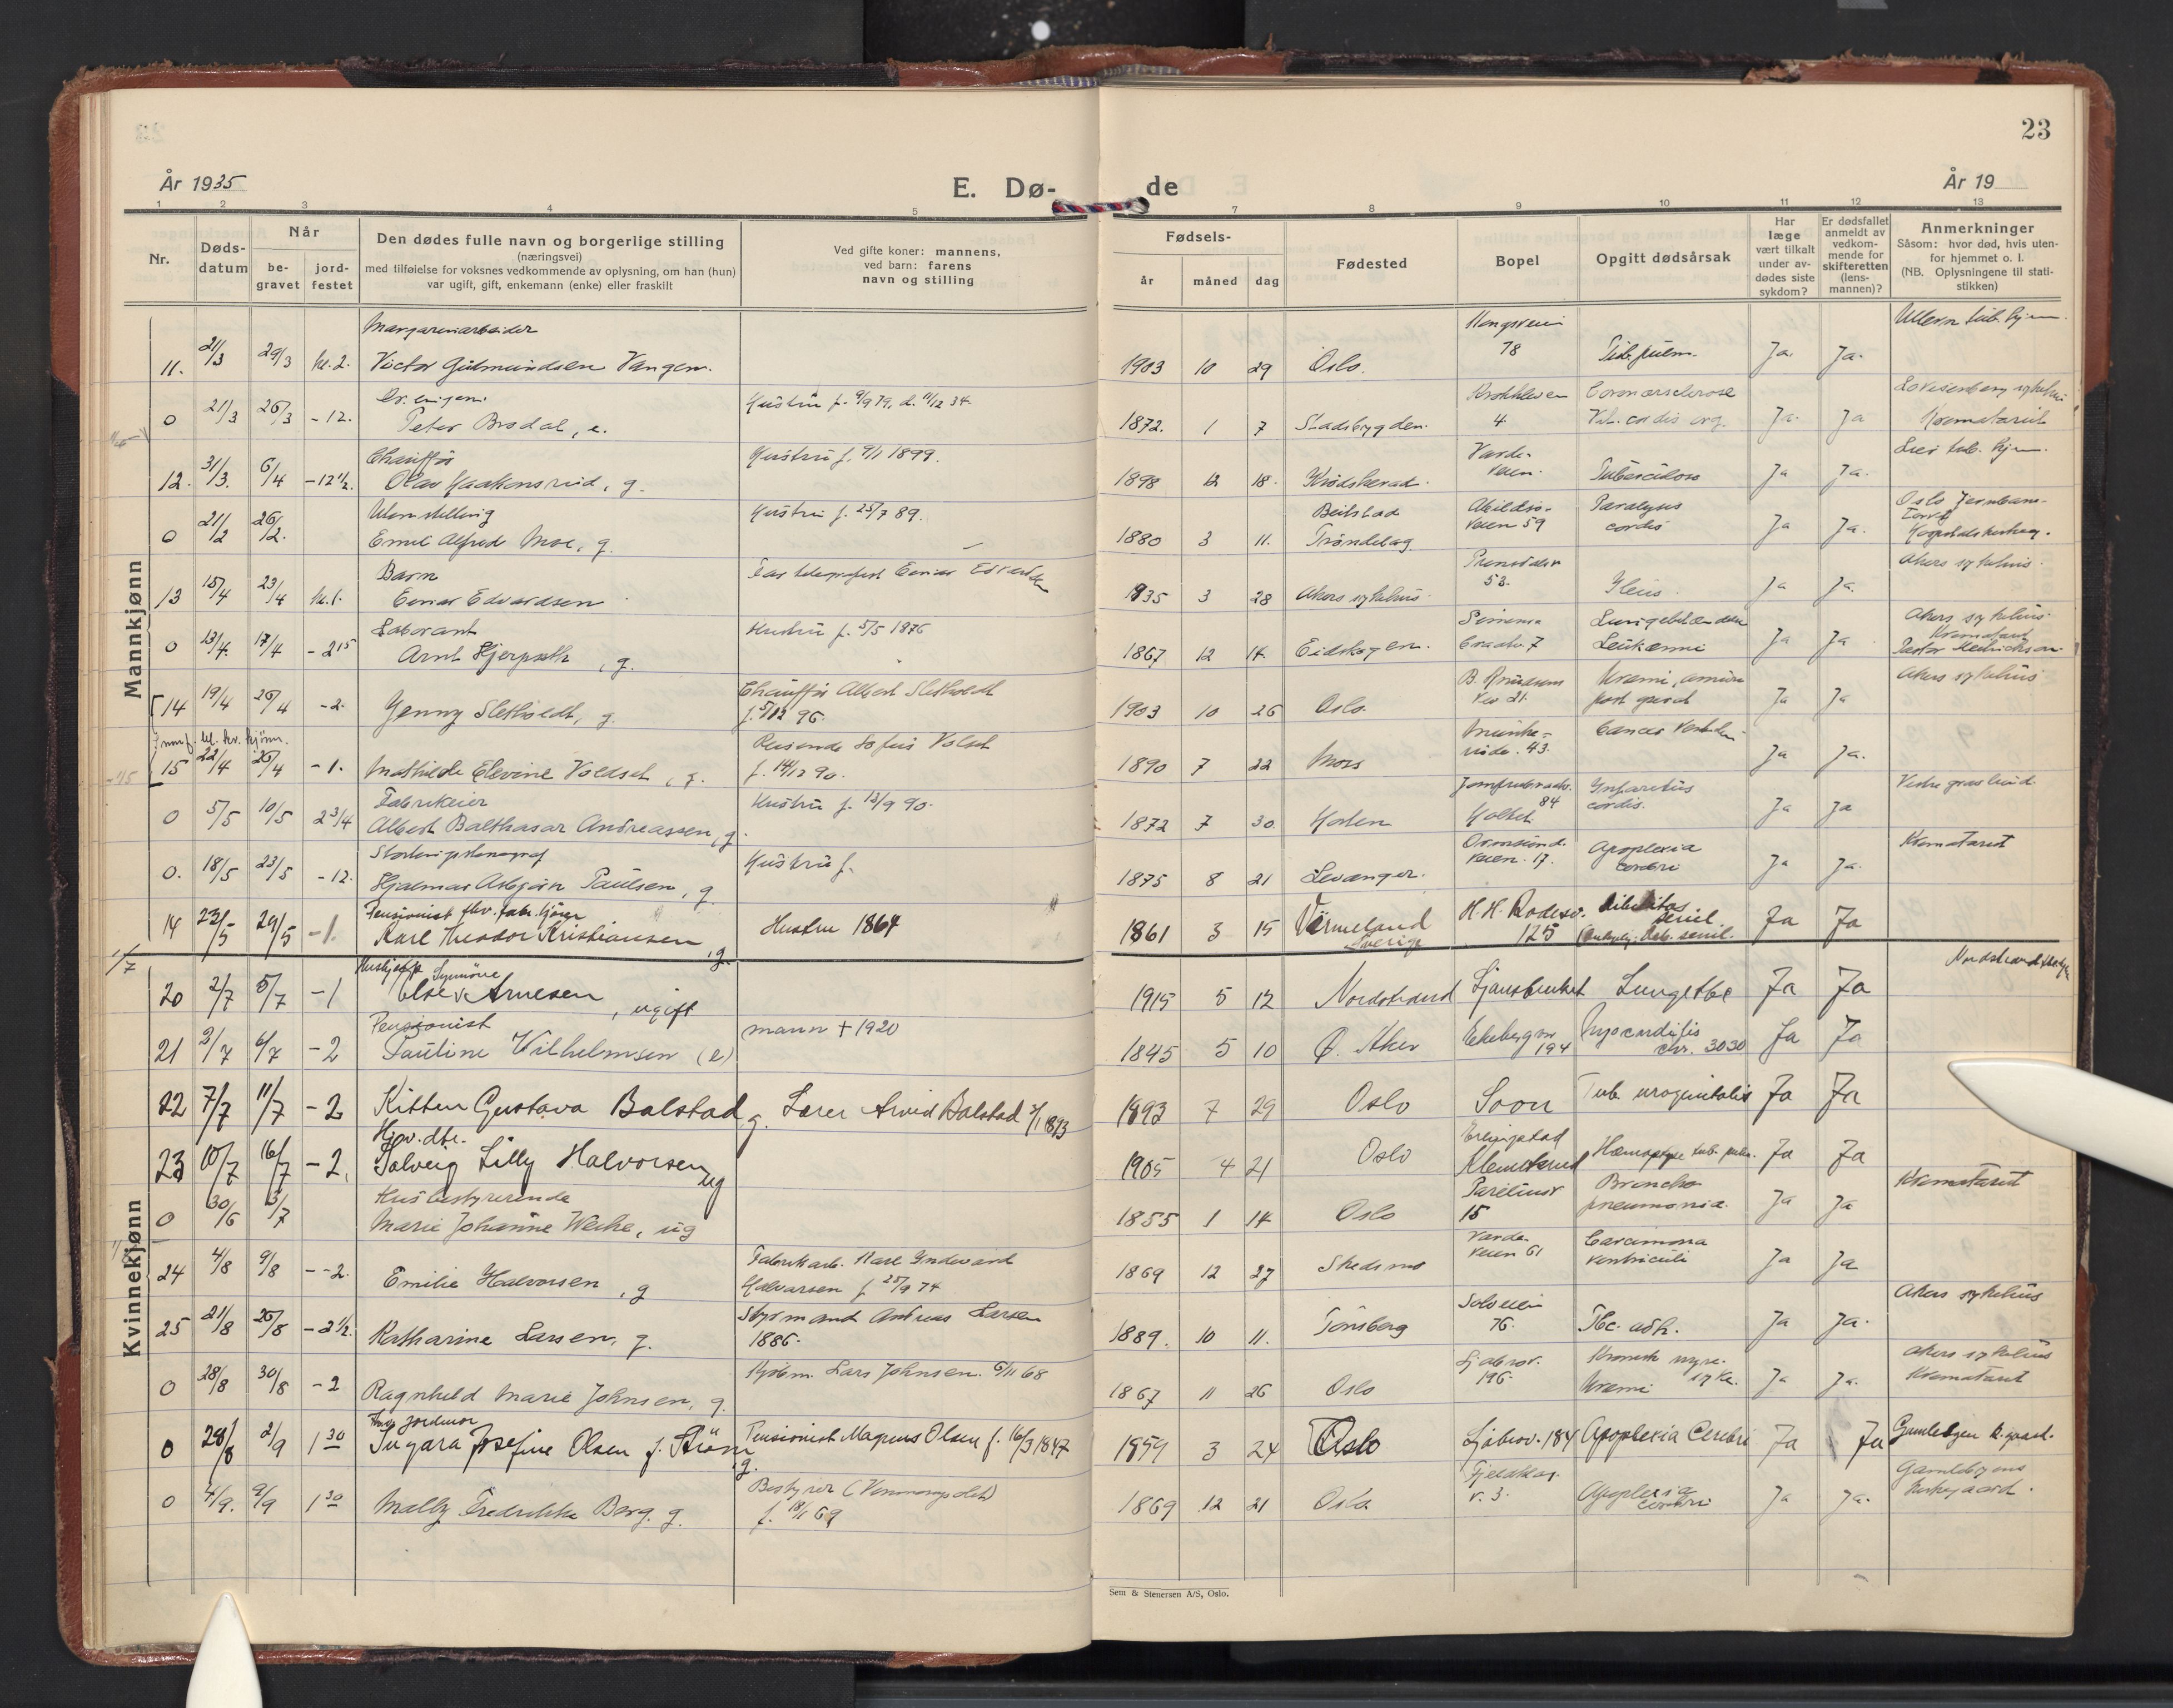 23
År 1935
E. Dø-
de
År 19
1 2 3 4 5 7 8 9 10 11 12 13
Nr.
Døds-
datum
Når
be-
gravet
jord-
festet
Den dødes fulle navn og borgerlige stilling
(næringsvei)
med tilføielse for voksnes vedkommende av oplysning, om han (hun)
var ugift, gift, enkemann (enke) eller fraskilt
Ved gifte koner: mannens,
ved barn: farens
navn og stilling
Fødsels-
år måned dag
Fødested
Bopel
Opgitt dødsårsak
Har
læge
vært tilkalt
under av-
dødes siste
sykdom?
Er dødsfallet
anmeldt av
vedkom-
mende for
skifteretten
(lens-
mannen)?
Anmerkninger
Såsom: hvor død, hvis uten-
for hjemmet o. l.
(NB. Oplysningene til stati-
stikken)
Mannkjønn
Margarinarbeider
11. 21/3 29/3 kl. 2. Victor Gudmundsen Vangen. 1903 10 29 Oslo. 78 Tub. pulm. Ja. Ja. Ullern tub. hjem.
0 21/3 26/3 -12. Peter Brodal, e. Hustru f. 9/9 79, d. 11/12 34. 1872. 1 7 Stadsbygden. 4 Ja. Ja Krematoriet
Chauffør
12. 31/3. 6/4 -12 1/2. Olav Haakensrud, g. Hustru f. 9/1 1899. 1898 12 18. Krødsherad. Varde-
veien. Tuberculose Ja Ja. Lier tub. hjem.
Uten stilling
0 21/2 26/2. Emil Alfred Moe, g. Hustru f. 25/7 89. 1880 3 11. Beitstad
Trøndelag Abildsø-
veien 59 Paralysis
cordis Ja Ja.
Barn
13 15/4 23/4 kl. 1. Einar Edvardsen Far telegrafist Einar Edvardsen 1935 3 28 Akers sykehus. 53. Ileus. Ja Ja. Akers sykehus.
Laborant
0 13/4. 17/4 -2 15 Arnt Hjerpseth, g. Hustru f. 5/5 1876 1867 12 14. Eidskogen. Leukæmi Ja Ja Akers sykehus.
Krematoriet
14 19/4 26/4 -2. Jenny Sletholdt, g. Chauffør Albert Sletholdt
f. 5/12 96. 1903 10 26 Oslo. Ja Ja Akers sykehus
15 22/4 26/4 -1. Mathilde Elevine Voldset, g. Reisende Sofus Volset
f. 14/12 90. 1890 7 22 Moss 43. Cancer Ja Ja.
Fabrikeier
0 5/5 10/5 2 3/4 Albert Balthasar Andreassen, g. Hustru f. 13/9 90. 1872 7 30 Horten 84
Holtet Infarctus
cordis. Ja Ja
Stortingsstenograf
0. 18/5 23/5 -12. Hjalmar Asbjørn Paulsen, g. Hustru f. 1875 8 21 Levanger. Ormsund-
veien. 17. Apoplexia
cerebri Ja Ja. Krematoriet
14 23/5 29/5 -1. Karl Theodor Kristiansen, g. Hustru 1864 1861 3 15 Vermeland
Sverige H. H. Rodesv.
125 Ja Ja
Kvinnekjønn
20 2/7 5/7 -1 Else Synnöve Arnesen, ugift 1915 5 12 Nordstrand Ljansbruket Lungetbc Ja Ja
Pensionist
21 2/7 6/7 -2 Pauline Wilhelmsen (e) mann + 1920 1845 5 10 Ø. Aker Ekebergv.
194 Myocarditis
chr. 3030 Ja Ja
22 7/7 11/7 -2 Kitten Gustava Balstad, g. Lærer Arvid Balstad 3/1 1893 1893 7 29 Oslo Soon Tub. urogenitalis Ja Ja
23 10/7 16/7 -2. Solveig Lilly Halvorsen ug 1905 4 21 Oslo Klemetsrud Ja Ja
Husbestyrerinde
0 30/6 3/7 Marie Johanne Werke, ug 1855 1 14 Oslo Parelius v
15 Broncho
pneumonia. Ja Ja Krematoriet
24 4/8 9/8 --2. Emilie Halvorsen, g Fabrikarb. Karl Indevard
Halvorsen f. 25/9 74 1869 12 27 Skedsmo Varde-
veien 61 Carcinoma
ventriculi Ja Ja
25 21/8 26/8 -2 1/2. Katharine Larsen, g. Styrmand Andreas Larsen
1886. 1889. 10 11. Tønsberg Solveien
76. Tbc. adh. Ja Ja. Akers sykehus
0 28/8 30/8 -2 Ragnhild Marie Johnsen, g. Kjøbm. Lars Johnsen. 6/11 68 1867 11 26 Oslo Ljabrov.
196. Kronisk nyre-
Uræmi Ja Ja. Akers sykehus
Krematoriet
jordmor
0 28/8 2/9 1 30 Ingara Josefine Olsen f. Strøm, g. Pensionist Magnus Olsen f. 16/3 1847 1859 3 24 Oslo Ljabrov. 184 Apoplexia Cerebri Ja Ja Gamlebyen k.gaard.
0 4/9. 9/9 1 30 Melly Fredrikke Berg. g. Bestyrer (Vinmonopolet)
f. 18/1 69 1869 12 21 Oslo v. 3. Apoplexia
cerebri Ja Ja. Gamlebyens
kirkegaard.
Sem & Stenersen A/S, Oslo.